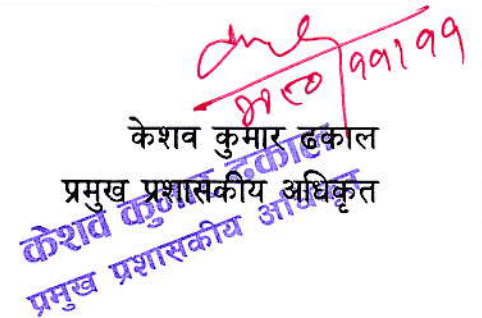 २०८०/११/११
केशव कुमार ढकाल
प्रमुख प्रशासकीय अधिकृत
केशव कुमार ढकाल
प्रमुख प्रशासकीय अधिकृत